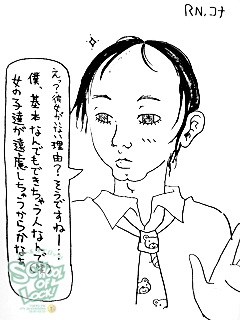 RN.コナ
えっ?彼女がいない理由?そうですねー…
僕、基本なんでもできちゃう人なんで(笑)
女の子達が遠慮しちゃうからかなぁ